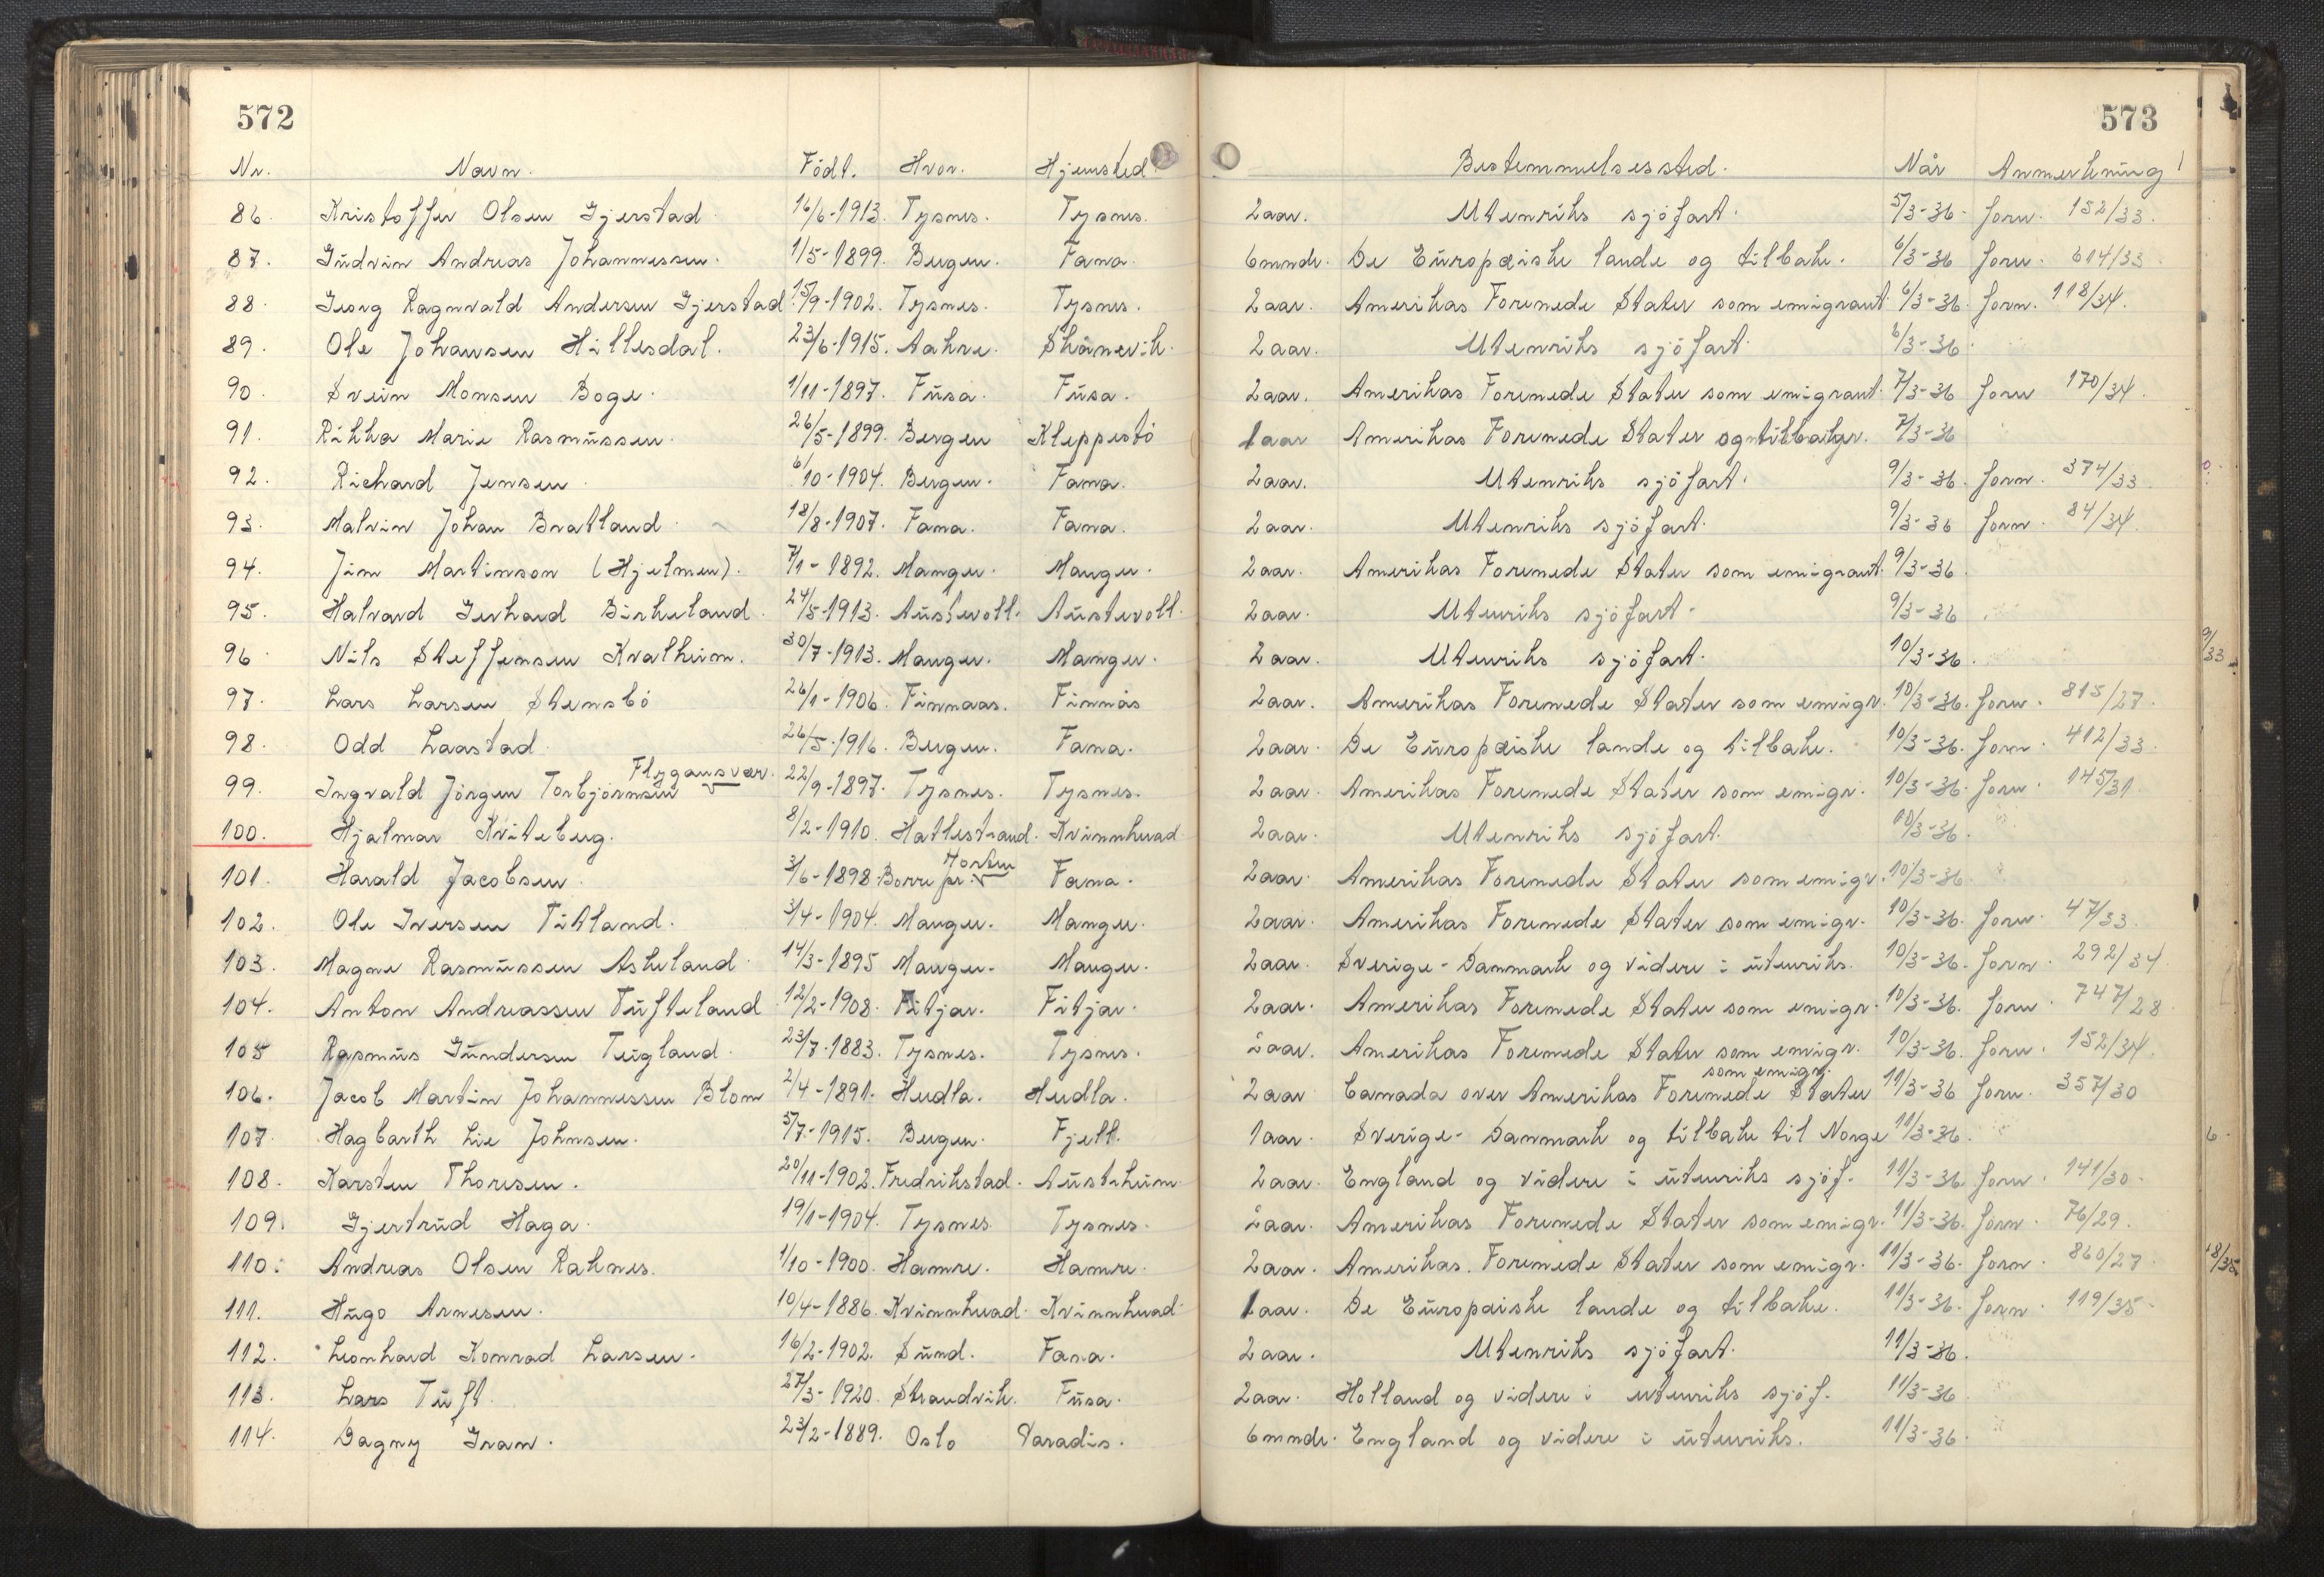 572
573
Nr. Navn. Född. Hvor. Hjemsted. Bestemmelsessted. Når Anmerkning!
86. Kristoffer Olsen Gjerstad. 16/6-1913. Tysnes. Tysnes. 2 aar. Utenriks sjöfart. 5/3-36. forn. 152/33.
87. Gudvin Andreas Johannessen. 1/5-1899. Bergen. Fana. 6 mndr. De Europæiske lande og tilbake. 6/3-36 forn. 614/33.
88. Georg Ragnvald Andersen Gjerstad. 15/9-1902. Tysnes. Tysnes. 2 aar. Amerikas Forenede Stater som emigrant. 6/3-36. forn. 118/34.
89. Ole Johansen Hillesdal. 23/6-1915. Aakre. Skånevik. 2 aar. Utenriks sjöfart. 6/3-36.
90. Svein Monsen Boge. 1/11-1897. Fusa. Fusa. 2 aar. Amerikas Forenede Stater som emigrant. 7/3-36 forn 170/34.
91. Rikka Marie Rasmussen. 26/5-1899. Bergen Kleppestö 1 aar Amerikas Forenede Stater og tilbake. 7/3-36
92. Richard Jensen. 6/10-1904. Bergen. Fana. 2 aar. Utenriks sjöfart. 9/3-36. forn. 374/33.
93. Malvin Johan Bratland. 18/8-1907. Fana. Fana. 2 aar. Utenriks sjöfart. 9/3-36 forn. 84/34.
94. Jim Martinson (Hjelmen). 7/1-1892. Manger. Manger. 2 aar. Amerikas Forenede Stater som emigrant. 9/3-36.
95. Halvard Gerhard Birkeland. 24/5-1913. Austevoll. Austevoll. 2 aar. Utenriks sjöfart. 9/3-36
96. Nils Steffensen Kvalheim. 30/7-1913. Manger. Manger. 2 aar. Utenriks sjöfart. 10/3-36. 9/33
97. Lars Larsen Stensbö 26/1-1906. Finnaas. Finnås 2 aar. Amerikas Forenede Stater som emigr. 10/3-36. forn. 815/27.
98. Odd Laastad. 26/5-1916. Bergen. Fana. 2 aar. De Europæiske lande og tilbake. 10/3-36. forn. 412/33.
99. Ingvald Jörgen Torbjörnsen Flygansvær. 22/9-1897. Tysnes. Tysnes. 2 aar. Amerikas Forenede Stater som emigr. 10/3-36. forn. 145/31
100. Hjalmar Kviteberg. 8/2-1910. Hatlestrand. Kvinnherad 2 aar. Utenriks sjöfart. 10/3-36.
101. Harald Jacobsen. 3/6-1898. Borre pr. Horten Fana. 2 aar. Amerikas Forenede Stater som emigr. 10/3-36.
102. Ole Iversen Titland. 3/4-1904. Manger. Manger. 2 aar. Amerikas Forenede Stater som emigr. 10/3-36. forn. 47/33.
103. Magne Rasmussen Askeland. 14/3-1895 Manger. Manger. 2 aar. Sverige-Danmark og videre i utenriks. 10/3-36. forn. 292/34
104. Anton Andreassen Tufteland 12/2-1908. Fitjar. Fitjar. 2 aar. Amerikas Forenede Stater som emigr. 10/3-36. forn. 747/28
105 Rasmus Gundersen Teigland. 23/7-1883. Tysnes. Tysnes. 2 aar. Amerikas Forenede Stater som emigr. 10/3-36. forn. 152/34.
106. Jacob Martin Johannessen Blom 2/4-1891. Herdla. Herdla. 2 aar Canada over Amerikas Forenede Stater som emigr. 11/3-36 forn. 357/30
107. Hagbarth Lie Johnsen. 5/7-1915. Bergen. Fjell. 1 aar. Sverige-Danmark og tilbake til Norge 11/3-36.
108. Karsten Thoresen. 20/11-1902. Fredrikstad. Austrheim 2 aar. England og videre i utenriks sjöf. 11/3-36. forn. 141/30.
109. Gjertrud Haga. 19/1-1904. Tysnes Tysnes. 2 aar. Amerikas Forenede Stater som emigr. 11/3-36. forn. 76/29.
110. Andreas Olsen Raknes. 1/10-1900. Hamre. Hamre. 2 aar. Amerikas Forenede Stater som emigr. 11/3-36. forn. 860/27. 8/35
111. Hugo Arnesen. 10/4-1886. Kvinnherad. Kvinnherad. 1 aar. De Europæiske lande og tilbake. 11/3-36. forn. 119/35.
112. Leonhard Konrad Larsen. 16/2-1902. Sund. Fana. 2 aar. Utenriks sjöfart. 11/3-36.
113. Lars Tuft. 27/3-1920. Strandvik. Fusa. 2 aar. Holland og videre i utenriks sjöf. 11/3-36
114. Dagny Gran. 23/2-1889. Oslo Paradis. 6 mndr. England og videre i utenriks. 11/3-36.